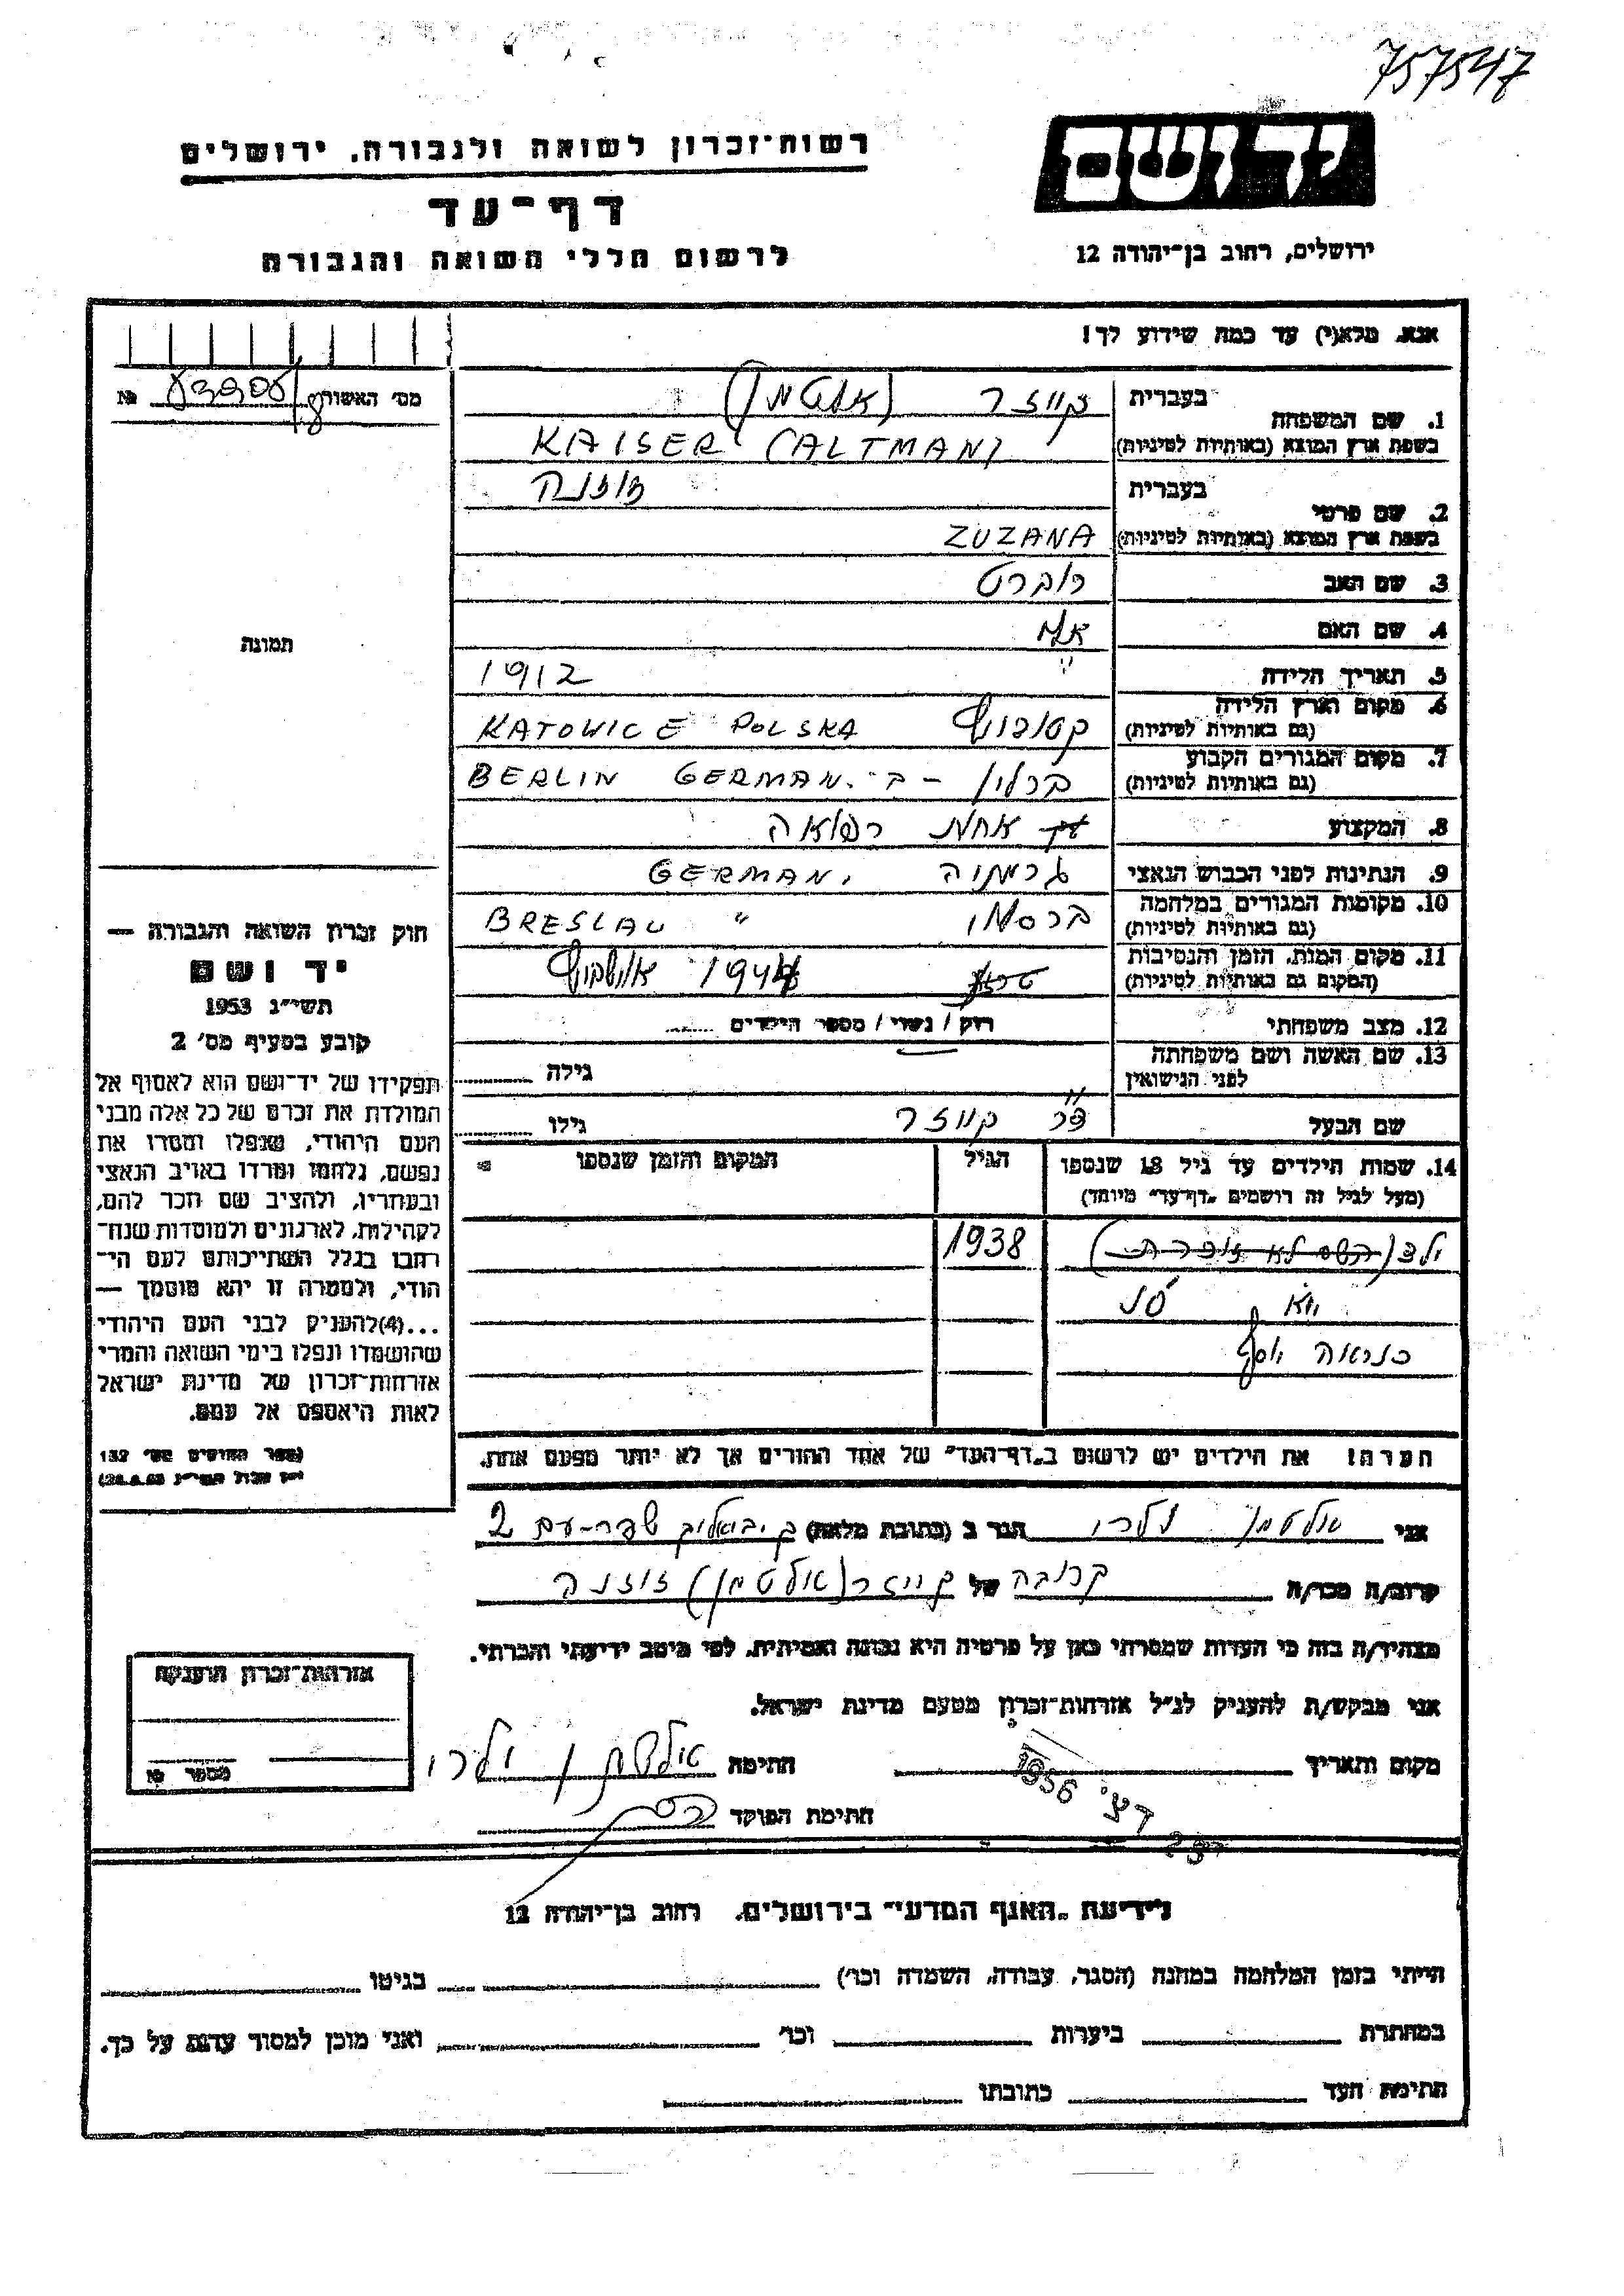 757547
יד ושם
רשות־זכרון לשואה ולגבורה, ירושלים
דף־עד
לרשום חללי השואה והגבורה
ירושלים, רחוב בן־יהודה 12
אנא, מלא(י) עד כמה שידוע לך!
מס׳ האשור №
1. שם המשפחה
בעברית קייזר (אלטמן)
בשפת ארץ המוצא (באותיות לטיניות) KAISER (ALTMAN)
2. שם פרטי
בעברית זוזנה
בשפת ארץ המוצא (באותיות לטיניות) ZUZANA
3. שם האב רוברט
4. שם האם
תמונה
5. תאריך הלידה 1912
6. מקום וארץ הלידה
(גם באותיות לטיניות) קטוביץ KATOWICE POLSKA
7. מקום המגורים הקבוע
(גם באותיות לטיניות) ברלין - ב. BERLIN GERMAN.
8. המקצוע אחות רפואה
9. הנתינות לפני הכבוש הנאצי גרמניה GERMAN.
10. מקומות המגורים במלחמה
(גם באותיות לטיניות) ברסלו BRESLAU "
11. מקום המות, הזמן והנסיבות
(המקום גם באותיות לטיניות) 1944 אושביץ
12. מצב משפחתי רוק / נשוי / מספר הילדים
13. שם האשה ושם משפחתה
לפני הנישואין גילה
שם הבעל קייזר גילו
14. שמות הילדים עד גיל 18 שנספו
(מעל לגיל זה רושמים „דף־עד” מיוחד)
הגיל
המקום והזמן שנספו
ילד (השם לא זוכרת) 1938
כנראה יוסף
הערה! את הילדים יש לרשום ב„דף־העד” של אחד ההורים אך לא יותר מפעם אחת.
חוק זכרון השואה והגבורה —
יד ושם
תשי״ג 1953
קובע בסעיף מס׳ 2
תפקידו של יד־ושם הוא לאסוף אל
המולדת את זכרם של כל אלה מבני
העם היהודי, שנפלו ומסרו את
נפשם, נלחמו ומרדו באויב הנאצי
ובעוזריו, ולהציב שם וזכר להם,
לקהילות, לארגונים ולמוסדות שנח־
רבו בגלל השתייכותם לעם הי־
הודי, ולמטרה זו יהא מוסמך —
...(4) להעניק לבני העם היהודי
שהושמדו ונפלו בימי השואה והמרי
אזרחות־זכרון של מדינת ישראל
לאות היאספם אל עמם.
(ספר החוקים מס׳ 132
אני אלטמן ולרי הגר ב (כתובת מלאה) ק. ביאליק שפר-עם 2
קרוב/ה מכר/ה קרובה של קייזר (אלטמן) זוזנה
מצהיר/ה בזה כי העדות שמסרתי כאן על פרטיה היא נכונה ואמיתית, לפי מיטב ידיעתי והכרתי.
אני מבקש/ת להעניק לנ״ל אזרחות־זכרון מטעם מדינת ישראל.
מקום ותאריך דצ׳ 1956 חתימה אלטמן ולרי
חתימת הפוקד
אזרחות־זכרון הוענקה
מספר
לידיעת „האגף המדעי” בירושלים, רחוב בן־יהודה 12
הייתי בזמן המלחמה במחנה (הסגר, עבודה, השמדה וכו׳) בגיטו
במחתרת ביערות וכו׳ ואני מוכן למסור עדות על כך.
חתימת העד כתובתו